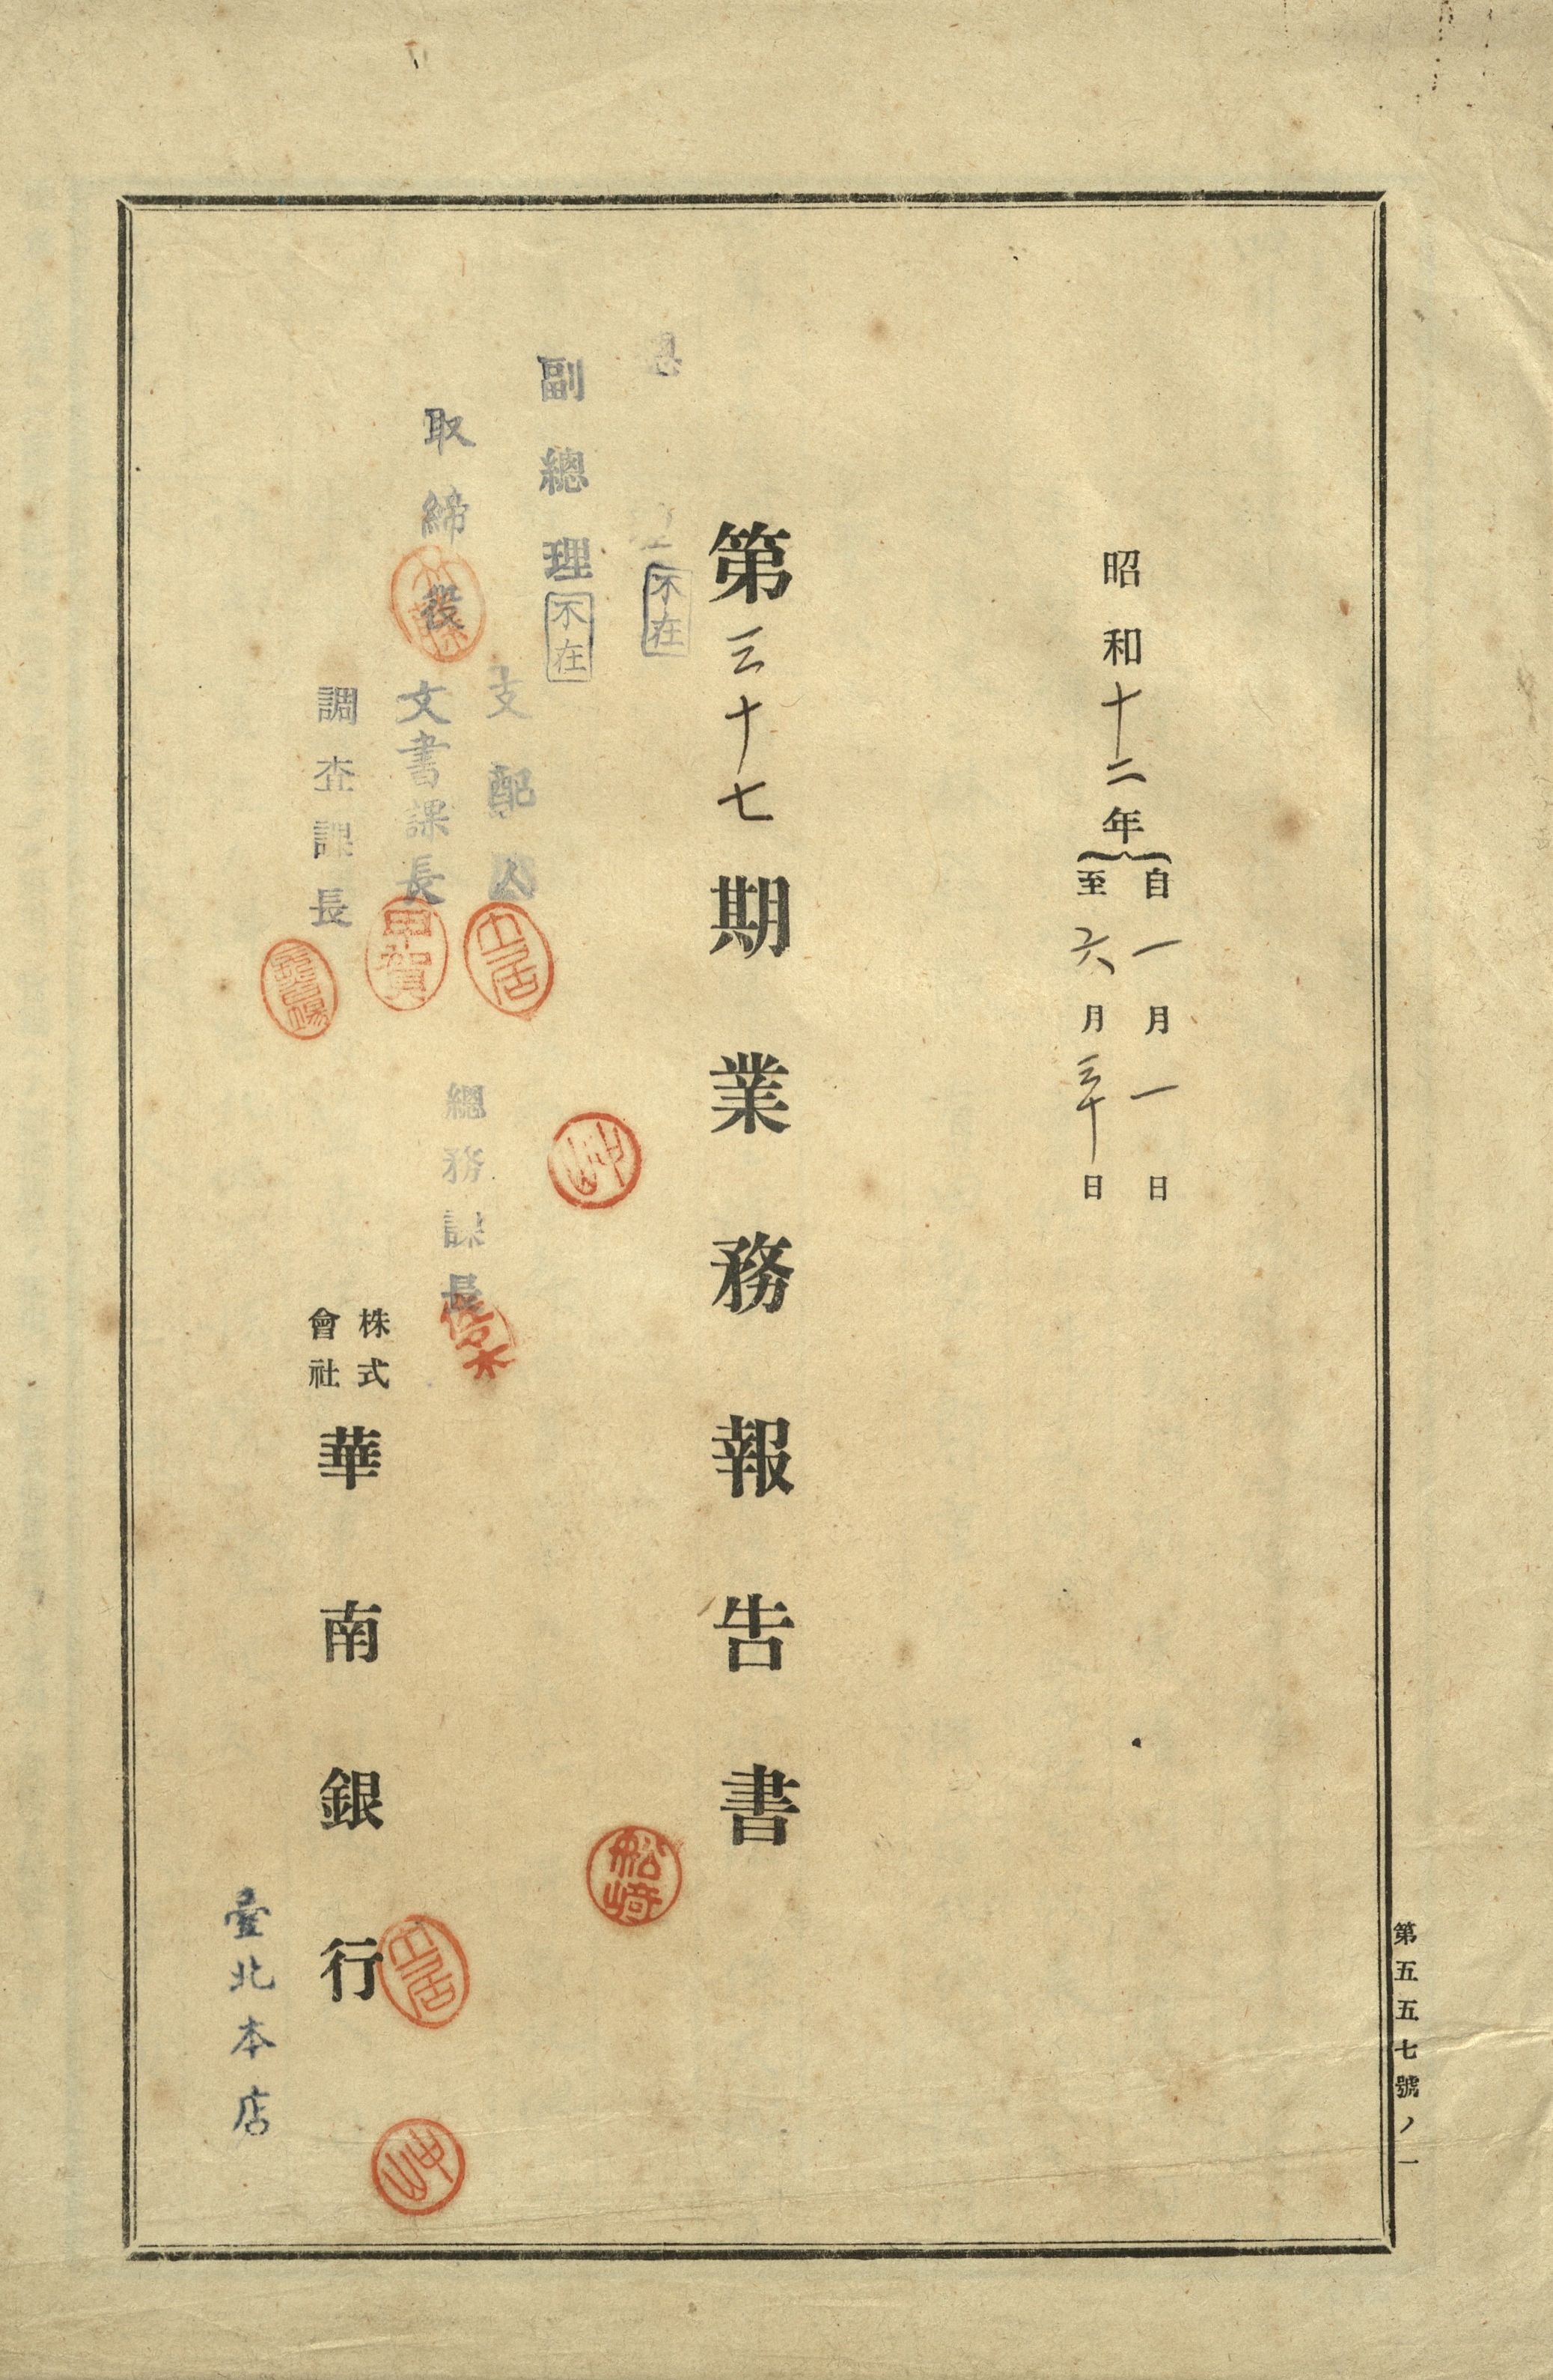 昭和十二年
自一月一日
至六月三十日
第三十七期業務報告書
不在
副總理
不在
取締役
支配人
文書課長
甲賀
調査課長
總務課長
佐々木
松崎
株式
會社
華南銀行
臺北本店
第五五七號ノ一